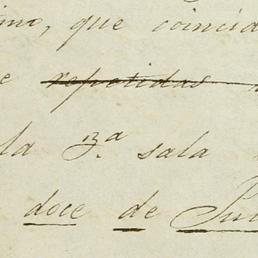 imo, que coincid
e repetidas
la 3.ª sala
doce de Ju